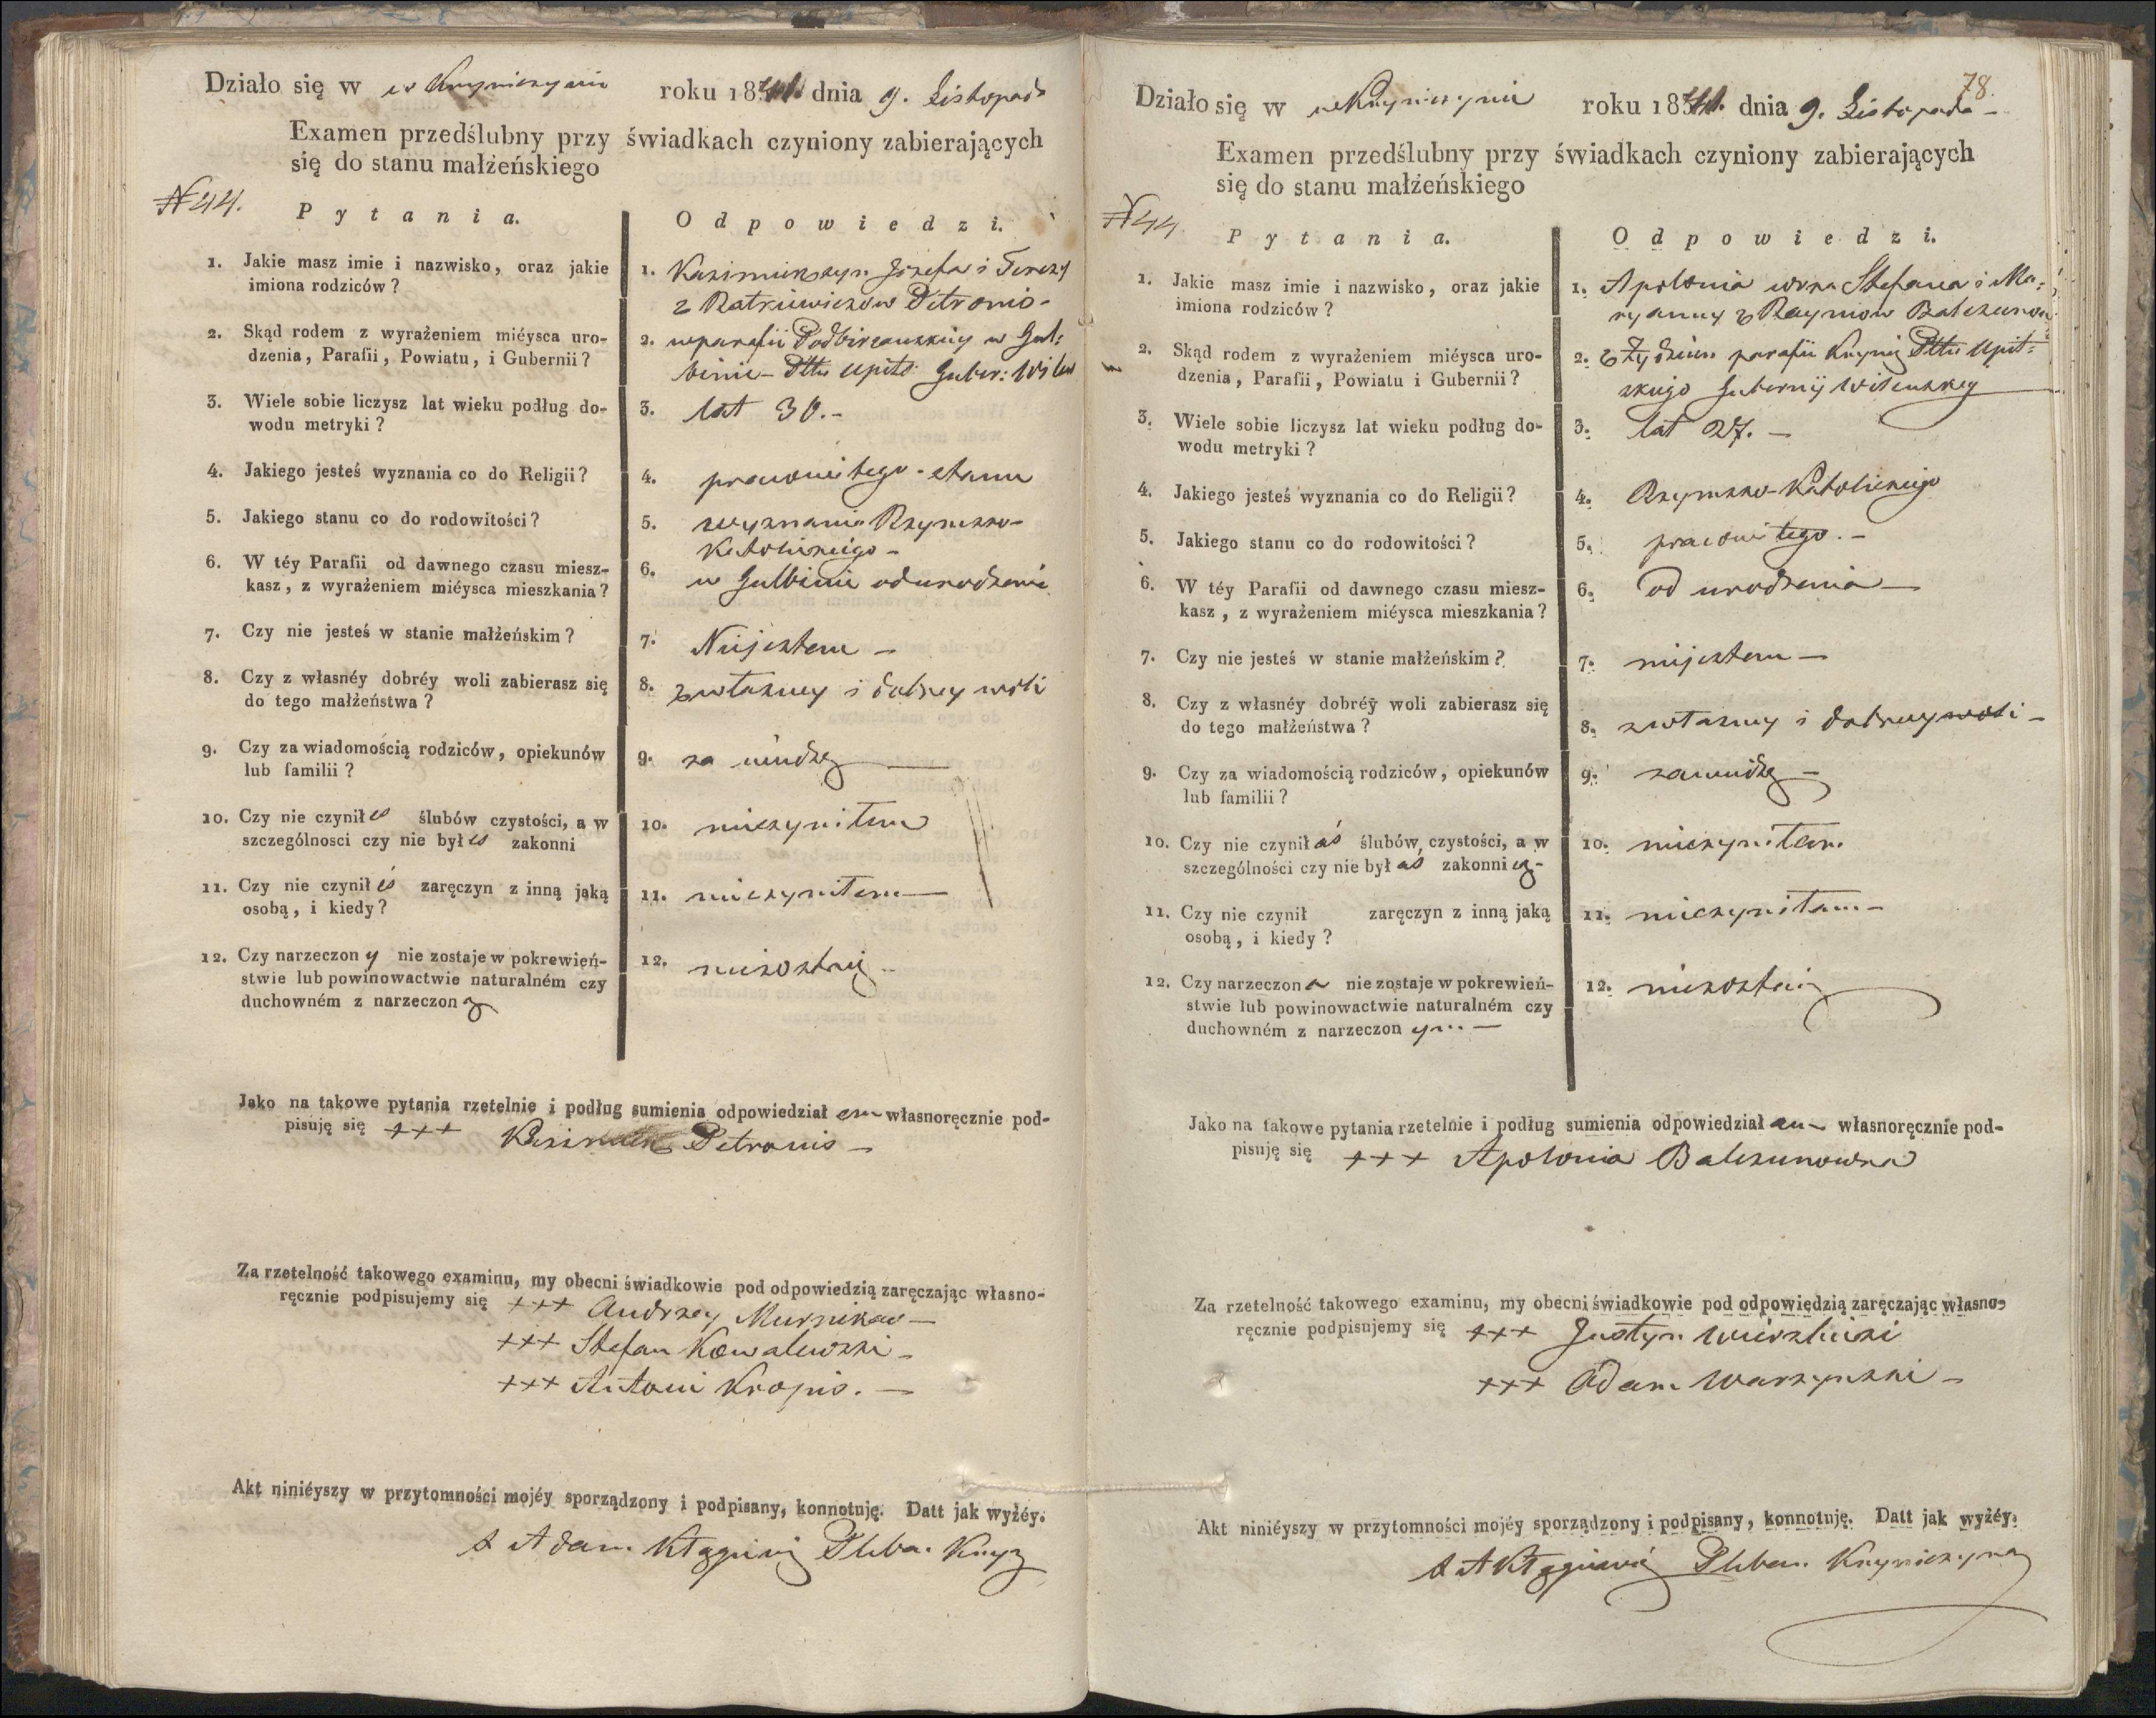 Działo się w w Kryniczynie roku 1841. dnia 9. Listopada
Examen przedślubny przy świadkach czyniony zabierających
się do stanu małżeńskiego
N 44.
Pytania.
Odpowiedzi.
1. Jakie masz imie i nazwisko, oraz jakie
imiona rodziców?
1. Kazimierz syn Józefa i Terezy
z Petronis
2. Skąd rodem z wyrażeniem miéysca uro-
dzenia, Parafii, Powiatu, i Gubernii?
2. w parafii w Gul:
binie Pttu Upits: Guber: Wilen
3. Wiele sobie liczysz lat wieku podług do-
wodu metryki?
3. lat 30.-
4. Jakiego jesteś wyznania co do Religii?
4. pracowitego stanu
5. Jakiego stanu co do rodowitości?
5. wyznania Rzymsko-
Katolickiego -
6. W téy Parafii od dawnego czasu miesz-
kasz, z wyrażeniem miéysca mieszkania?
6. w Gulbinie od urodzenia
7. Czy nie jesteś w stanie małżeńskim?
7. Niejestem -
8. Czy z własnéy dobréy woli zabierasz się
do tego małżeństwa?
8. z własney i dobrey woli
9. Czy za wiadomością rodziców, opiekunów
lub familii?
9. za wiedzą
10. Czy nie czynił eś ślubów czystości, a w
szczególnosci czy nie był eś zakonni
10. nieczyniłem
11. Czy nie czynił eś zaręczyn z inną jaką
osobą, i kiedy?
11. nieczyniłem -
12. Czy narzeczon y nie zostaje w pokrewień-
stwie lub powinowactwie naturalném czy
duchowném z narzeczon ą
12. niezostaię -
Jako na takowe pytania rzetelnie i podług sumienia odpowiedział em własnoręcznie pod-
pisuję się +++ Kazimierz Petronis -
Za rzetelność takowego examinu, my obecni świadkowie pod odpowiedzią zaręczając własno-
ręcznie podpisujemy się +++ Andrzey -
+++ Stefan Kowalewski -
+++ Antoni Kropis. -
Akt niniéyszy w przytomności mojéy sporządzony i podpisany, konnotuję. Datt jak wyżéy.
X Adam Pleba.
78.
Działo się w w Kryniczynie roku 1841. dnia 9. Listopada -
Examen przedślubny przy świadkach czyniony zabierających
się do stanu małżeńskiego
N 44
Pytania.
Odpowiedzi.
1. Jakie masz imie i nazwisko, oraz jakie
imiona rodziców?
1. Apolonia Stefana i Ma:
ryanny z
2. Skąd rodem z wyrażeniem miéysca uro-
dzenia, Parafii, Powiatu i Gubernii?
2. z parafii Pttu Upit-
skiego Gubernij Wilenskiey
3. Wiele sobie liczysz lat wieku podług do-
wodu metryki?
3. lat 27. -
4. Jakiego jesteś wyznania co do Religii?
4. Rzymsko-Katolickiego
5. Jakiego stanu co do rodowitości?
5. pracowitego. -
6. W téy Parafii od dawnego czasu miesz-
kasz, z wyrażeniem miéysca mieszkania?
6. od urodzenia -
7. Czy nie jesteś w stanie małżeńskim?
7. niejestem -
8. Czy z własnéy dobréy woli zabierasz się
do tego małżeństwa?
8. z własney i dobrey woli -
9. Czy za wiadomością rodziców, opiekunów
lub familii?
9. zawiedzą -
10. Czy nie czynił aś ślubów czystości, a w
szczególności czy nie był aś zakonni cą -
10. nieczyniłam
11. Czy nie czynił zaręczyn z inną jaką
osobą, i kiedy?
11. nieczyniłam -
12. Czy narzeczon a nie zostaje w pokrewień-
stwie lub powinowactwie naturalném czy
duchowném z narzeczon ym -
12. niezostaię
Jako na takowe pytania rzetelnie i podług sumienia odpowiedział am własnoręcznie pod-
pisuję się +++ Apolonia Balczunowna
Za rzetelność takowego examinu, my obecni świadkowie pod odpowiedzią zaręczając własno-
ręcznie podpisujemy się +++ Justyn
+++ Adam Warzynski -
Akt niniéyszy w przytomności mojéy sporządzony i podpisany, konnotuję. Datt jak wyżéy.
X A Pleban